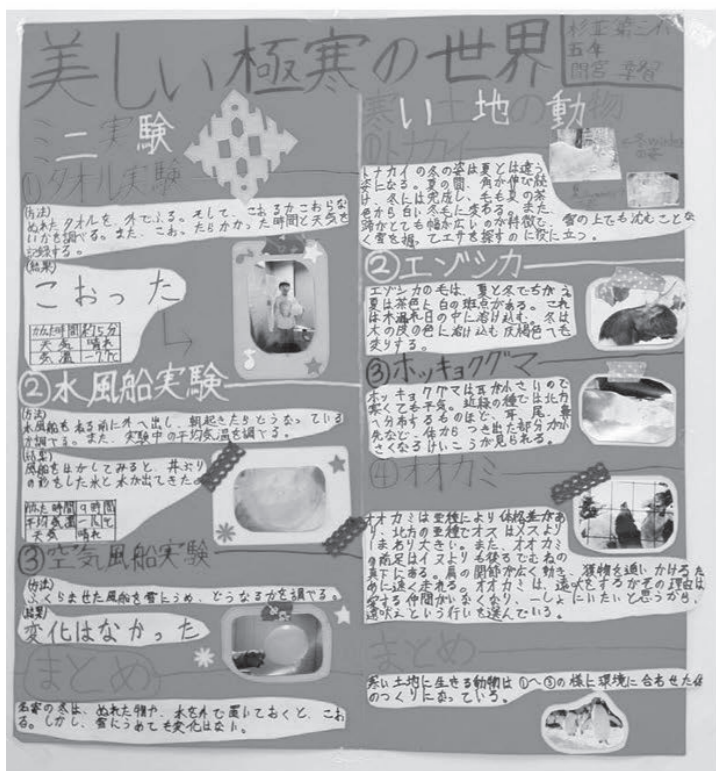 美しい極寒の世界
杉並第三小
五年
ミニ実験
①タオル実験
(方法)
ぬれたタオルを、外でふる。そして、こおるかこおらな
いかを調べる。また、こおったらかかった時間と天気を
記録する。
(結果)
こおった
かかった時間 約15分
天気 晴れ
気温 -7℃
②水風船実験
(方法)
水風船をねる前に外へ出し、朝起きたらどうなっている
か調べる。また、実験中の平均気温を調べる。
(結果)
風船をはがしてみると、丼ぶり
の形をした氷と水が出てきた。
時間 9時間
平均気温
天気 晴れ
③空気風船実験
(方法)
ふくらませた風船を雪にうめ、どうなるかを調べる。
結果
変化はなかった
まとめ
名寄の冬は、ぬれた物や、水を外で置いておくと、こお
る。しかし、雪にうめても変化はない。
寒い土地の動物
①トナカイ
←冬winter
の姿
トナカイの冬の姿は夏とは違う
姿になる。夏の間、角が伸び続
け、冬には完成し、毛も夏の茶
色から白い冬毛に変わる。また、
蹄がとても幅が広いのが特徴で、雪の上でも沈むことな
く雪を掘ってエサを探すのに役に立つ。
②エゾシカ
エゾシカの毛は、夏と冬でちがう
夏は茶色に白の斑点がある。これ
は木漏れ日の中に溶け込む。冬は
木の皮の色に溶け込む灰褐色へと
変りする。
③ホッキョクグマ
ホッキョクグマは耳が小さいので
寒くても平気。近縁の種では北方
へ分布するものほど、耳、尾、鼻
先など、体からつき出た部分が小
さくなるけいこうが見られる。
④オオカミ
オオカミは亜種により体格差があ
り、北方の亜種でオスはメスより
もあり大きい。また、オオカミ
の前足はイヌよりも後ろでむねの
真下にある。肩の関節が広く動き、獲物を追いかけるた
めに速く走れる。オオカミは、遠吠をするがその理由は
愛する仲間がいなくなり、一しょにいたいと思うから、
遠吠えという行いを選んでいる。
まとめ
寒い土地に生きる動物は①～③の様に環境に合わせた体
のつくりになっている。